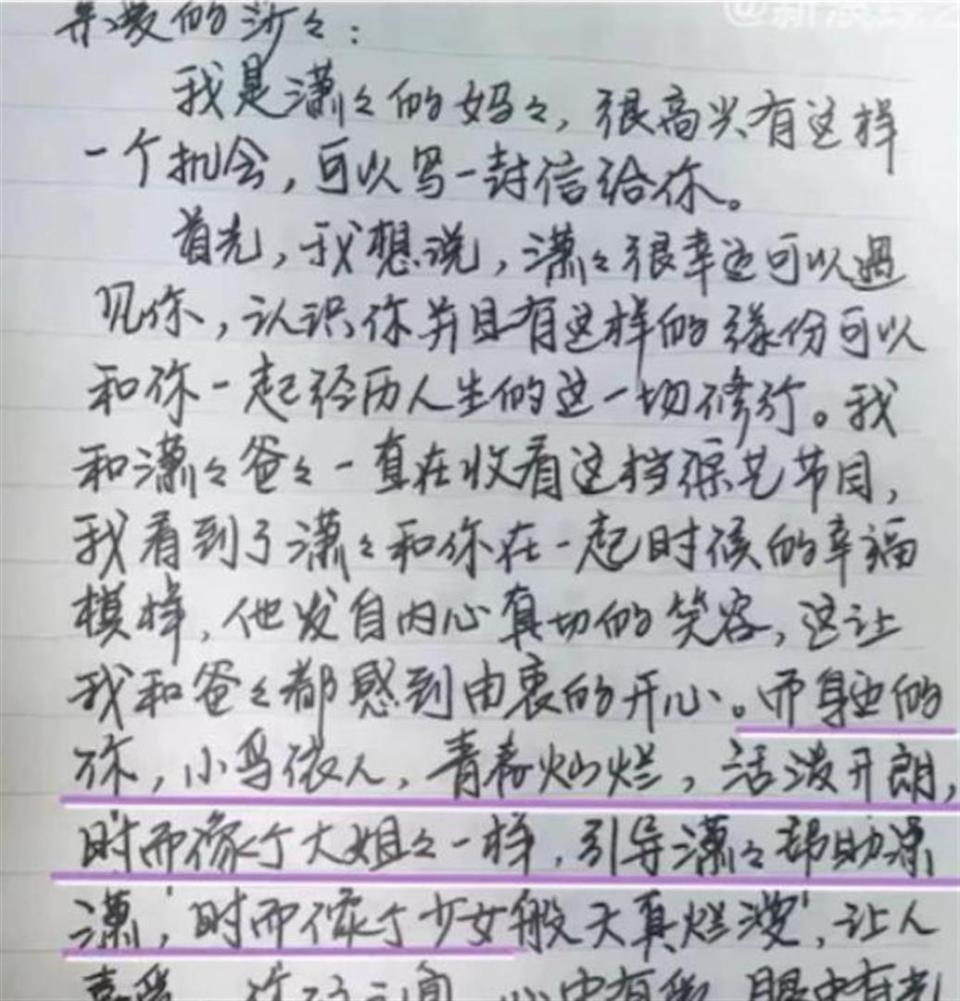 亲爱的沙々：
我是潇々的妈々，很高兴有这样
一个机会，可以写一封信给你。
首先，我想说，潇々很幸运可以遇
见你，认识你并且有这样的缘份可以
和你一起经历人生的这一切修行。我
和潇々爸々一直在收看这档综艺节目，
我看到了潇々和你在一起时候的幸福
模样，他发自内心真切的笑容，这让
我和爸々都感到由衷的开心。而身边的
你，小鸟依人，青春灿烂，活泼开朗，
时而像个大姐々一样，引导潇々帮助潇
潇，时而像个少女般天真烂漫，让人
喜爱
心中有
眼中有光